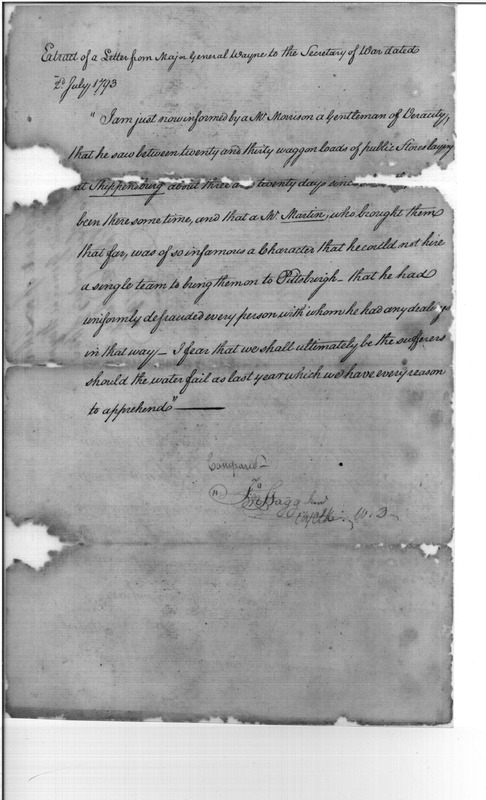 Extract of a Letter from Major General Wayne to the Secretary of War dated
2d July 1793
"I am just now informed by a Mr. Morrison a Gentleman of Veracity,
that he saw between twenty and thirty waggon loads of public Stores laying
at Shippensburg about three and twenty days since
been there some time, and that a Mr. Martin, who brought them
that far, was of so infamous a Character that he could not hire
a single team to bring them on to Pittsburgh - that he had
uniformly defrauded every person with whom he had any dealings
in that way - I fear that we shall ultimately be the sufferers
should the water fail as last year which we have every reason
to apprehend" —
Compared -
Jno Stagg Junr